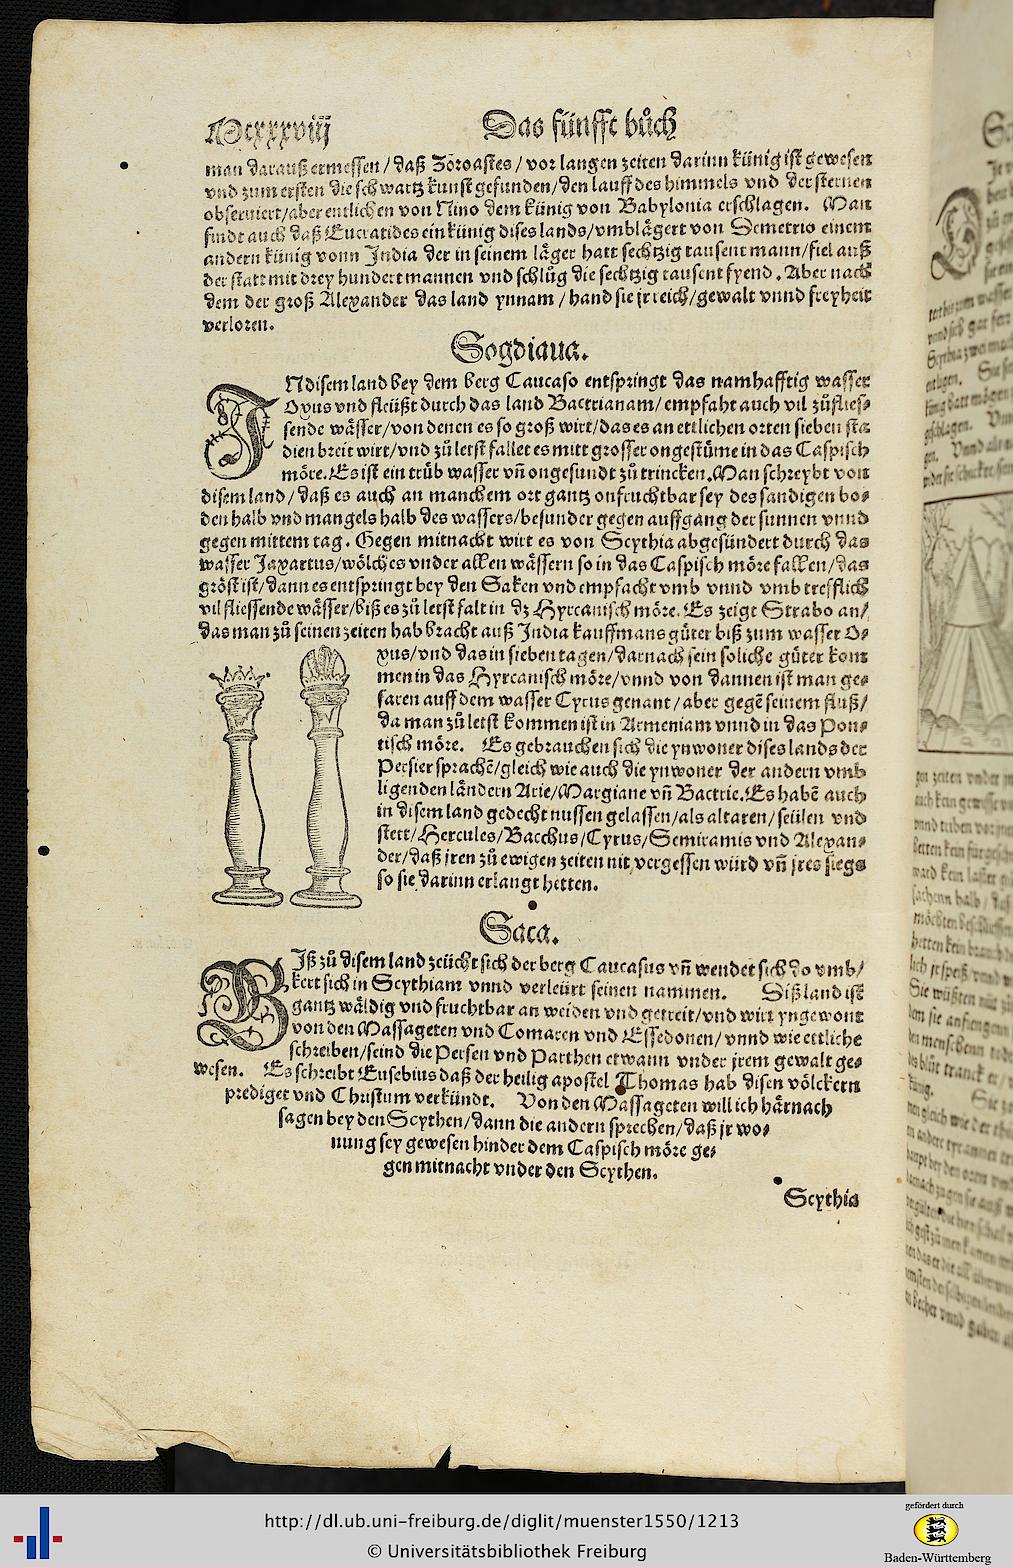 Mcxxxviij Das fünfft bůch
man darauß ermessen/daß Zoroastes/vor langen zeiten darinn künig ist gewesen
vnd zum ersten die schwartz kunst gefunden/den lauff des himmels vnd der sternen
obseruiert/aber entlichen von Nino dem künig von Babylonia erschlagen. Man
findt auch daß Eucratides ein künig dises lands/vmblägert von Demetrio einem
andern künig vonn India der in seinem läger hatt sechtzig tausent mann/fiel auß
der statt mit drey hundert mannen vnd schlůg die sechtzig tausent fyend. Aber nach
dem der groß Alexander das land ynnam/hand sie jr reich/gewalt vnnd freyheit
verloren.
Sogdiana.
INdisem land bey dem berg Caucaso entspringt das namhafftig wasser
Oxus vnd fleüßt durch das land Bactrianam/empfaht auch vil zůflies-
sende wässer/von denen es so groß wirt/das es an ettlichen orten sieben sta
dien breit wirt/vnd zů letst fallet es mitt grosser ongestüme in das Caspisch
möre. Es ist ein trüb wasser vñ ongesundt zů trincken. Man schreybt von
disem land/daß es auch an manchem ort gantz onfruchtbar sey des sandigen bo-
den halb vnd mangels halb des wassers/besunder gegen auffgang der sunnen vnnd
gegen mittem tag. Gegen mitnacht wirt es von Scythia abgesündert durch das
wasser Jaxartus/wölches vnder allen wässern so in das Caspisch möre fallen/das
gröst ist/dann es entspringt bey den Saken vnd empfacht vmb vnnd vmb trefflich
vil fliessende wässer/biß es zů letst falt in dz Hyrcanisch möre. Es zeigt Strabo an/
das man zů seinen zeiten hab bracht auß India kauffmans güter biß zum wasser O-
xus/vnd das in sieben tagen/darnach sein soliche güter kom
men in das Hyrcanisch möre/vnnd von dannen ist man ge-
faren auff dem wasser Cyrus genant/aber gegē seinem fluß/
da man zů letst kommen ist in Armeniam vnnd in das Pon-
tisch möre. Es gebrauchen sich die ynwoner dises lands der
Persier sprachē/gleich wie auch die ynwoner der andern vmb
ligenden ländern Arie/Margiane vñ Bactrie. Es habē auch
in disem land gedechtnussen gelassen/als altaren/seülen vnd
stett/Hercules/Bacchus/Cyrus/Semiramis vnd Alexan-
der/daß jren zů ewigen zeiten nit vergessen würd vñ jres siegs
so sie darinn erlangt hetten.
Saca.
BIß zů disem land zeücht sich der berg Caucasus vñ wendet sich do vmb/
kert sich in Scythiam vnnd verleürt seinen nammen. Diß land ist
gantz wäldig vnd fruchtbar an weiden vnd getreit/vnd wirt yngewont
von den Massageten vnd Comaren vnd Essedonen/vnnd wie ettliche
schreiben/seind die Persen vnd Parthen etwann vnder jrem gewalt ge-
wesen. Es schreibt Eusebius daß der heilig apostel Thomas hab disen völckern
prediget vnd Christum verkündt. Von den Massageten will ich härnach
sagen bey den Scythen/dann die andern sprechen/daß jr wo-
nung sey gewesen hinder dem Caspisch möre ge-
gen mitnacht vnder den Scythen.
Scythia
http://dl.ub.uni-freiburg.de/diglit/muenster1550/1213
© Universitätsbibliothek Freiburg
gefördert durch
Baden-Württemberg